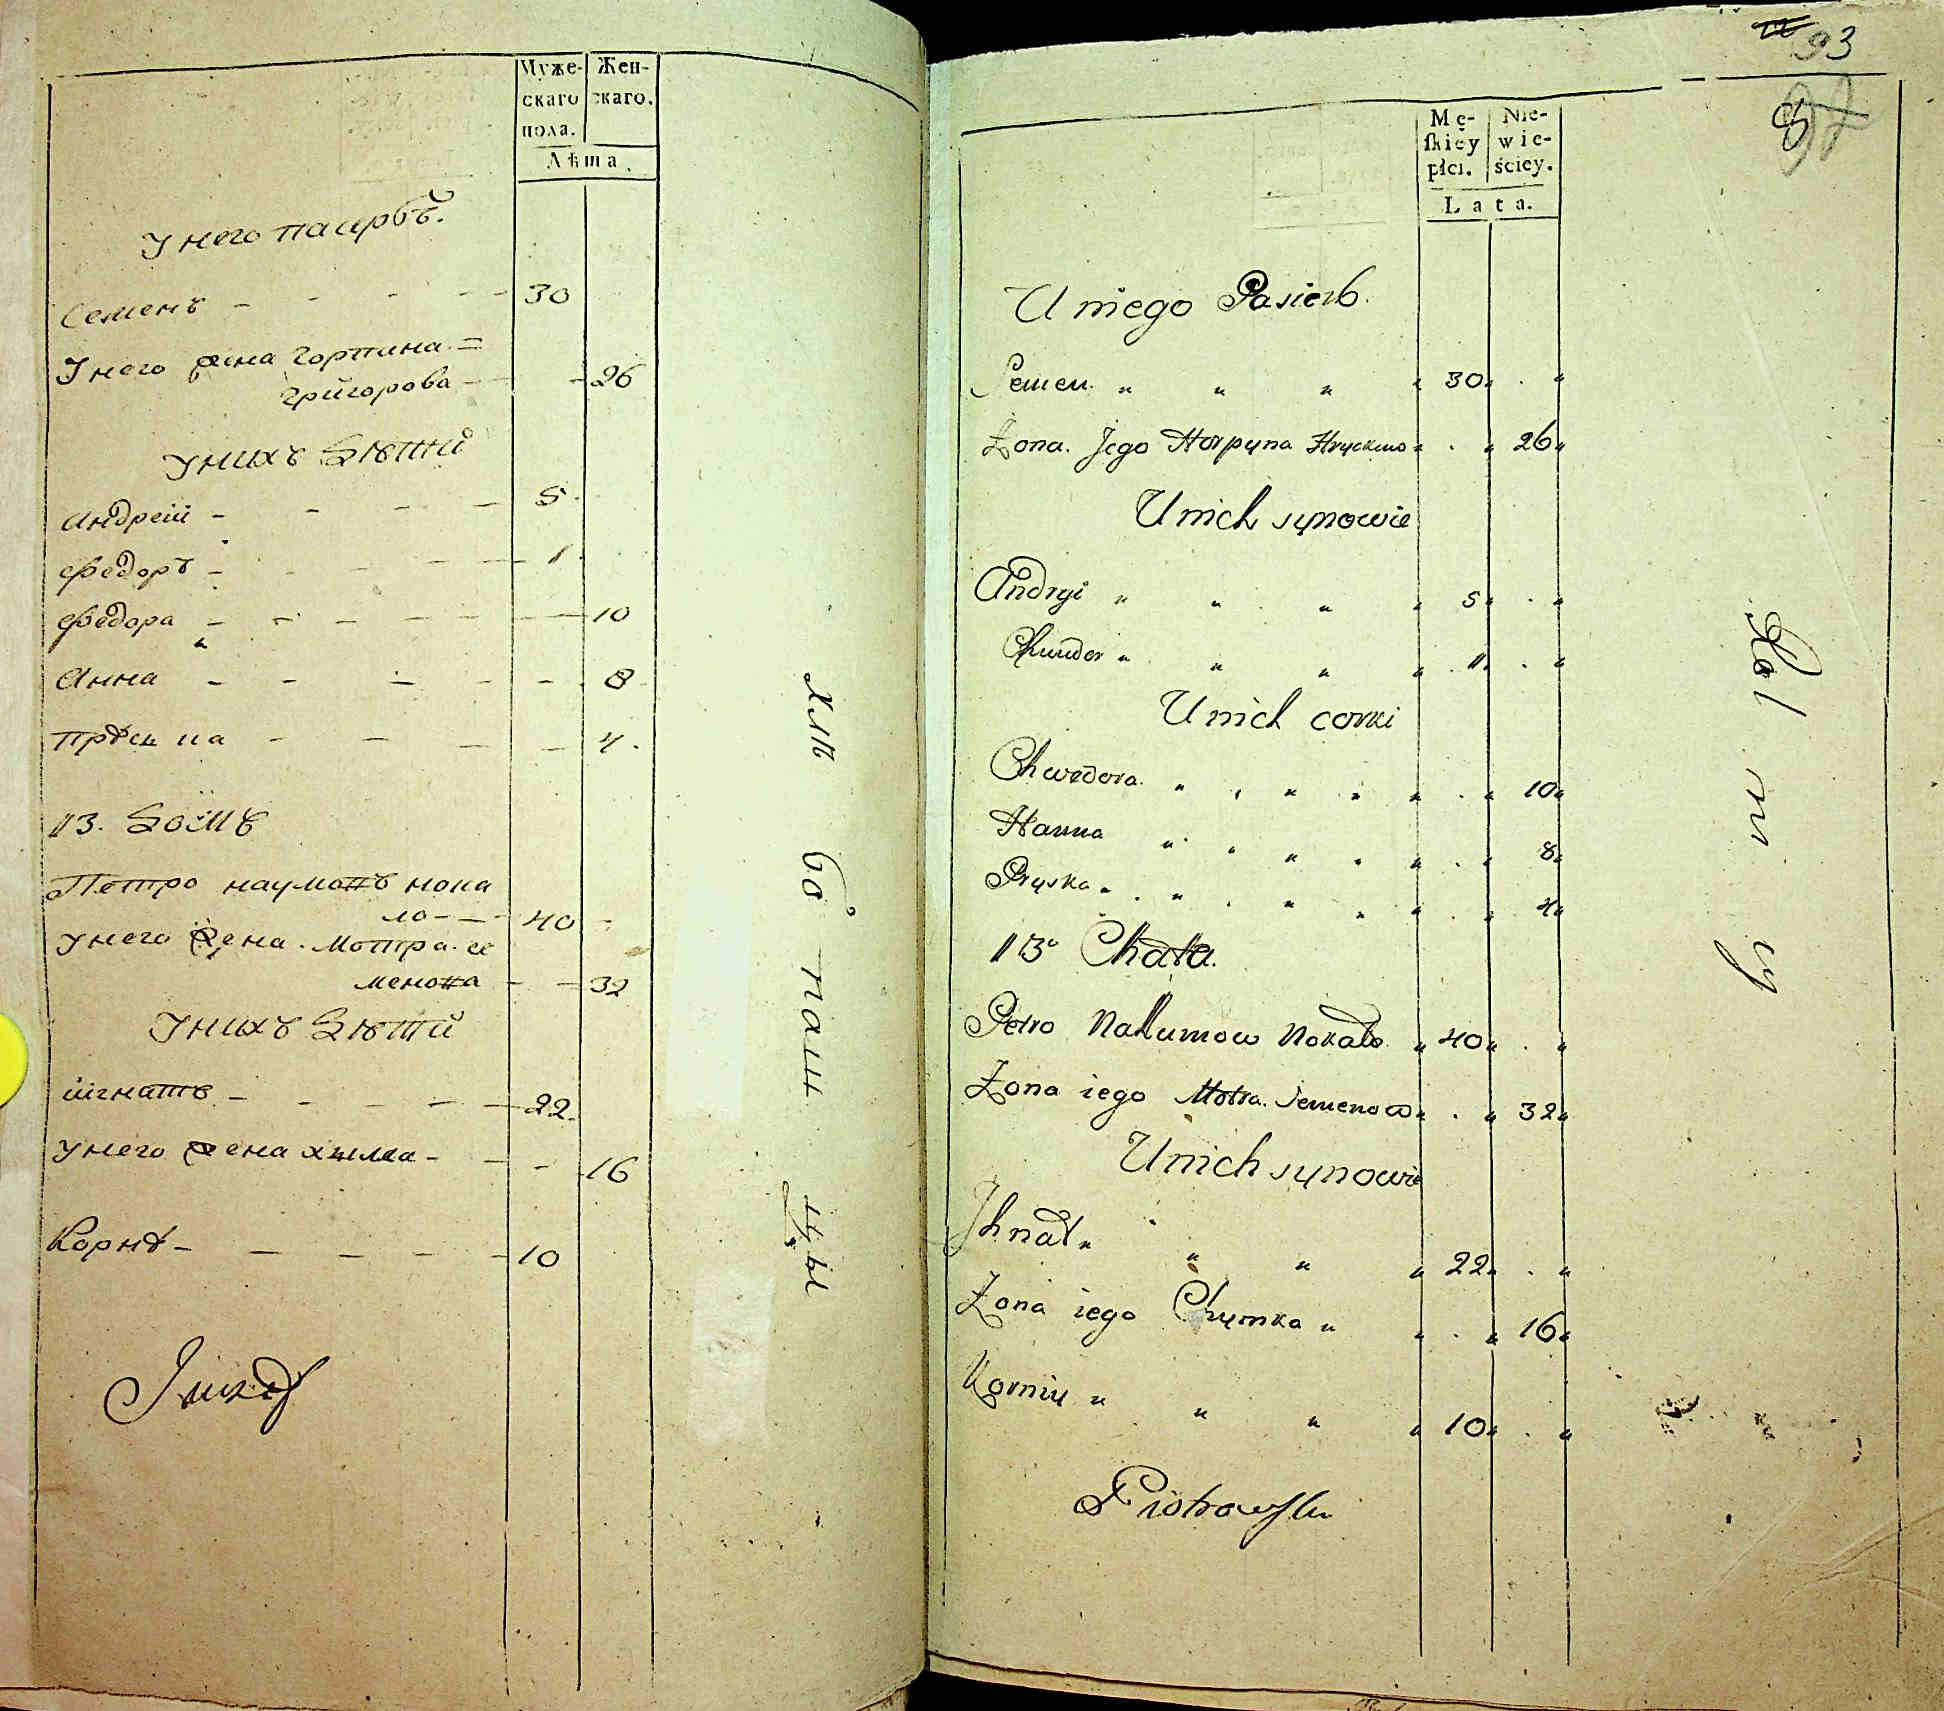 Муже-
скаго
пола.
Жен-
скаго.
Лѣта.
У него пасирбъ.
Семенъ - - - - 30
У него жена Горпина
Григорова - - 26
У нихъ дѣтй
Андрей - - - - 5
Федоръ - - - - 1
Федора - - - - 10
Анна - - - - 8
- - - - 4
113. домъ
Петро наумовъ нока
ло - - 40
У него жена Мотра се
менова - - 32
У нихъ дѣтй
игнатъ - - - - 22
У него жена химка - - 16
Корнѣ - - - - 10
хлѣ бо паш цы
93
Mę-
skiey
płci.
Nie-
wie-
ściey.
Lata.
U niego Pasierb.
Semen " " " " 30 " . "
Żona Jego Horpyna Hryckowa " . " 26 "
U nich synowie
Andryi " " " " 5 " . "
Chwedor " " " " 1 " . "
U nich corki
Chwedora " " " " " . " 10 "
Hanna " " " " " . " 8 "
Pryska " " " " " . " 4 "
113 Chata.
Petro Nahumow Nokalo " 40 " . "
Żona iego Motra Semenow " . " 32 "
U nich synowie
Ihnat " " " " 22 " . "
Żona iego Chymka " " . " 16 "
Korniy " " " " 10 " . "
Piotrowski
Rol ni cy